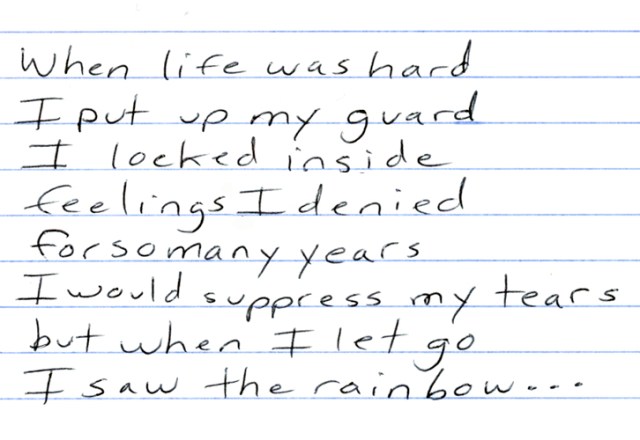 When life was hard
I put up my guard
I locked inside
feelings I denied
for so many years
I would suppress my tears
but when I let go
I saw the rainbow...